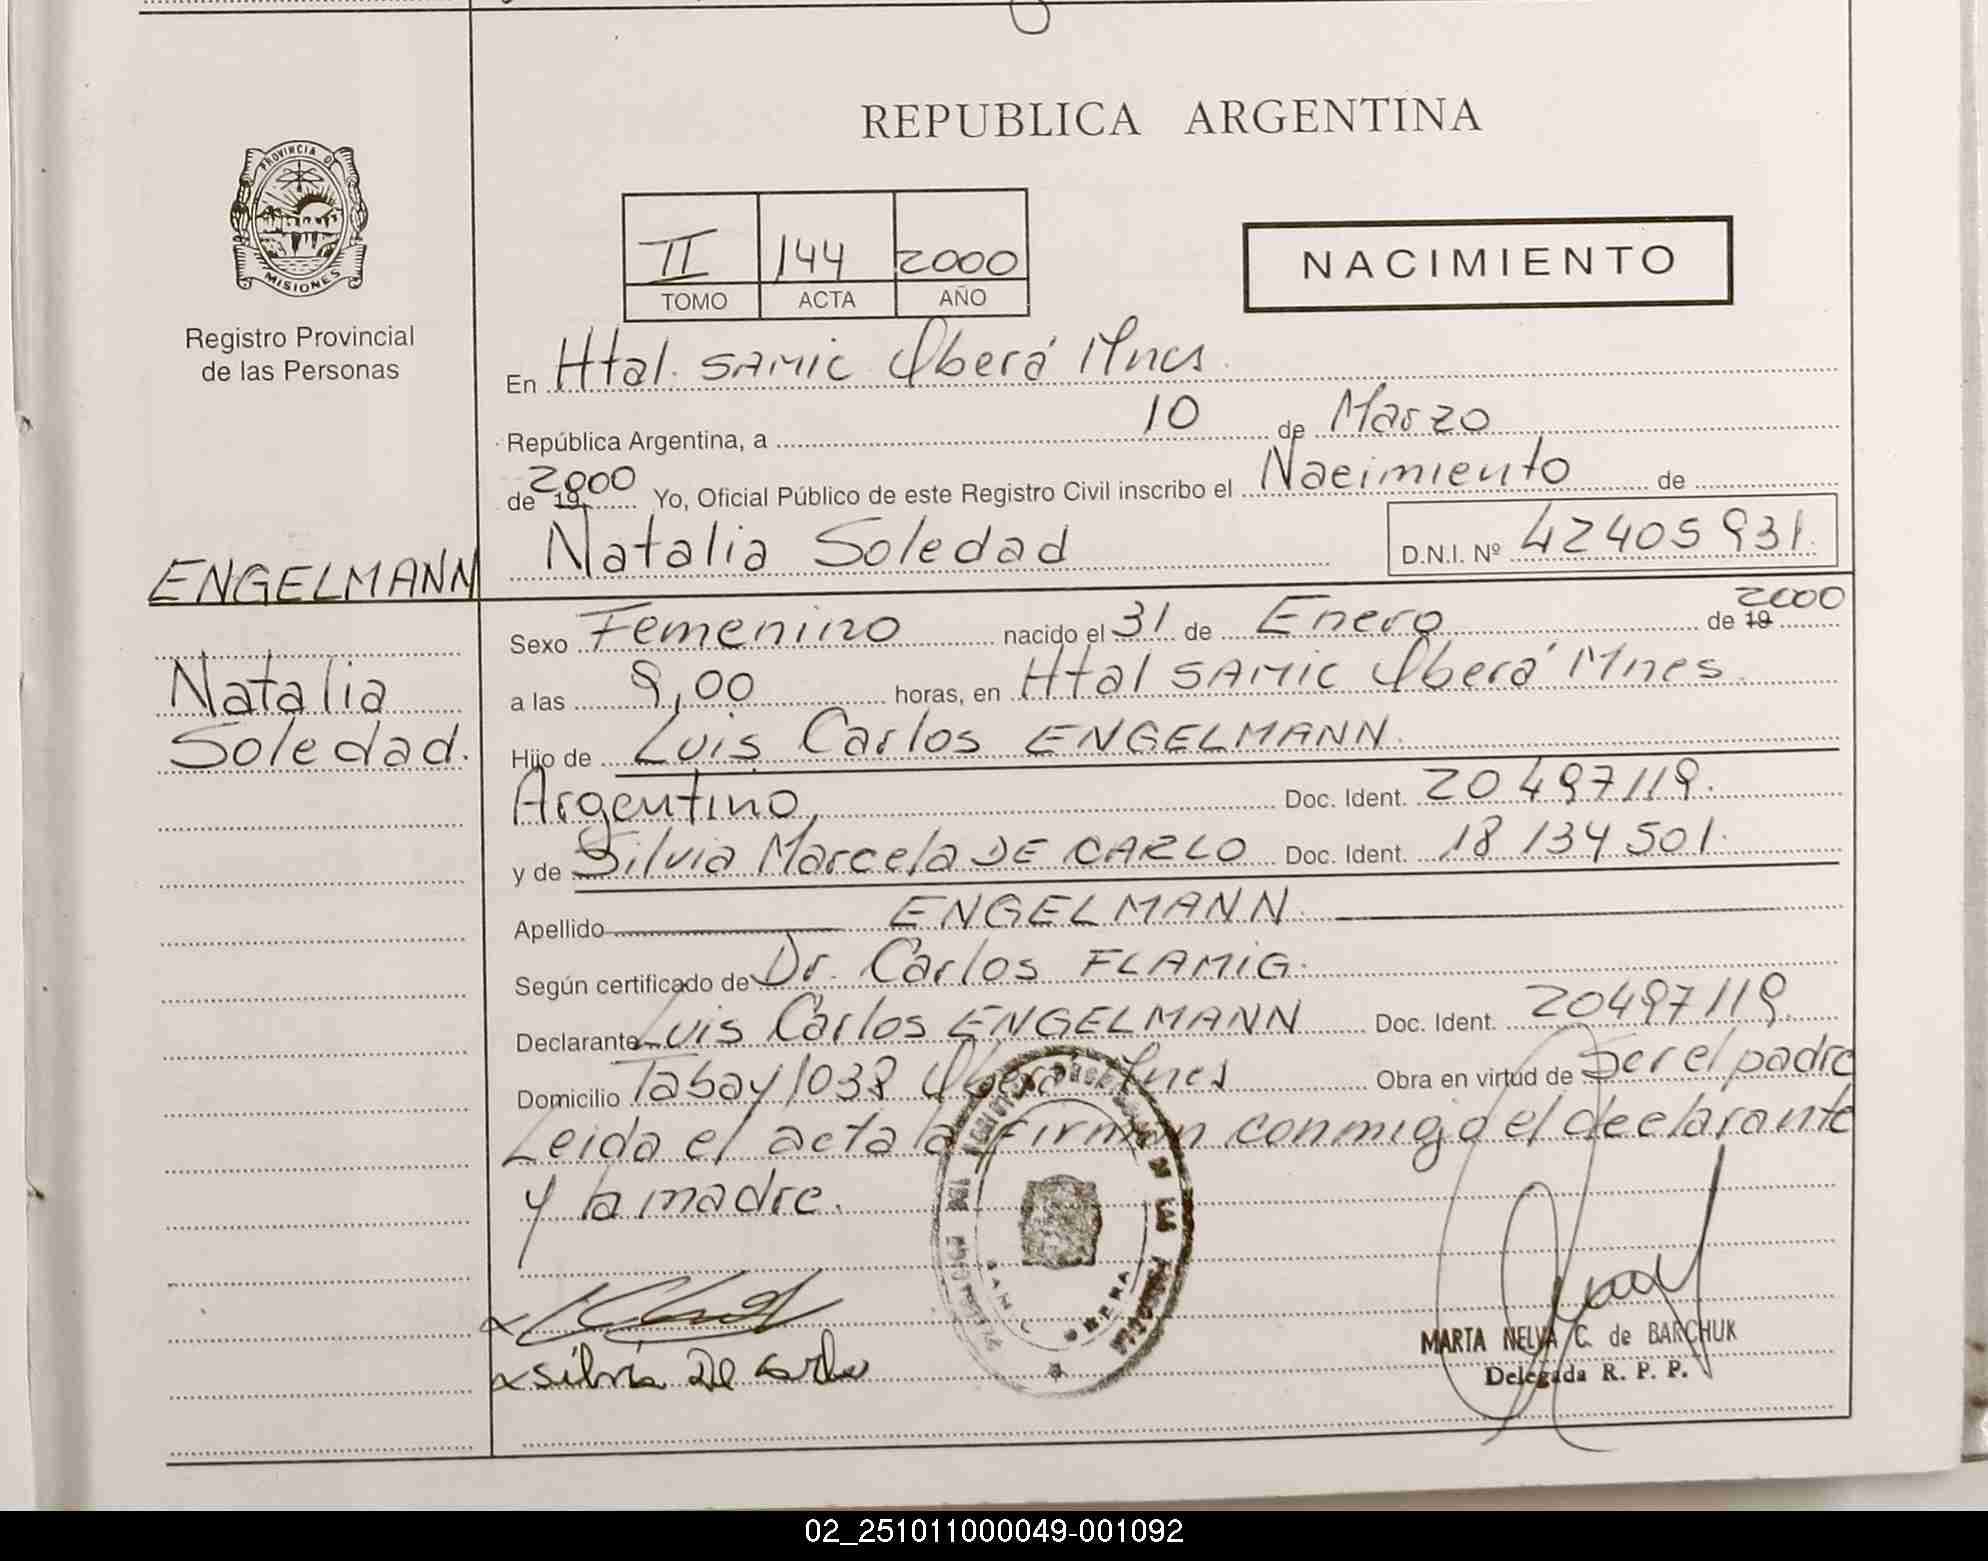 REPUBLICA ARGENTINA
PROVINCIA DE
MISIONES
Registro Provincial
de las Personas
II 144 2000
TOMO ACTA AÑO
NACIMIENTO
En Htal. SAMIC Oberá Mnes.
República Argentina, a 10 de Marzo
de 19 2000 Yo, Oficial Público de este Registro Civil inscribo el Nacimiento de
Natalia Soledad D.N.I. Nº 42405931.
ENGELMANN
Natalia
Soledad.
Sexo Femenino nacido el 31 de Enero de 19 2000
a las 9,00 horas, en Htal SAMIC Oberá Mnes.
Hijo de Luis Carlos ENGELMANN.
Argentino, Doc. Ident. 20497119.
y de Silvia Marcela DE CARLO Doc. Ident. 18134501.
Apellido ENGELMANN.
Según certificado de Dr. Carlos FLAMIG.
Declarante Luis Carlos ENGELMANN Doc. Ident. 20497119.
Domicilio Tabay 1038 Oberá Mnes Obra en virtud de Ser el padre
Leida el acta la firman conmigo el declarante
y la madre.
Silvia De Carlo
OBERA
MARTA NELVA C. de BARCHUK
Delegada R. P. P.
02_251011000049-001092